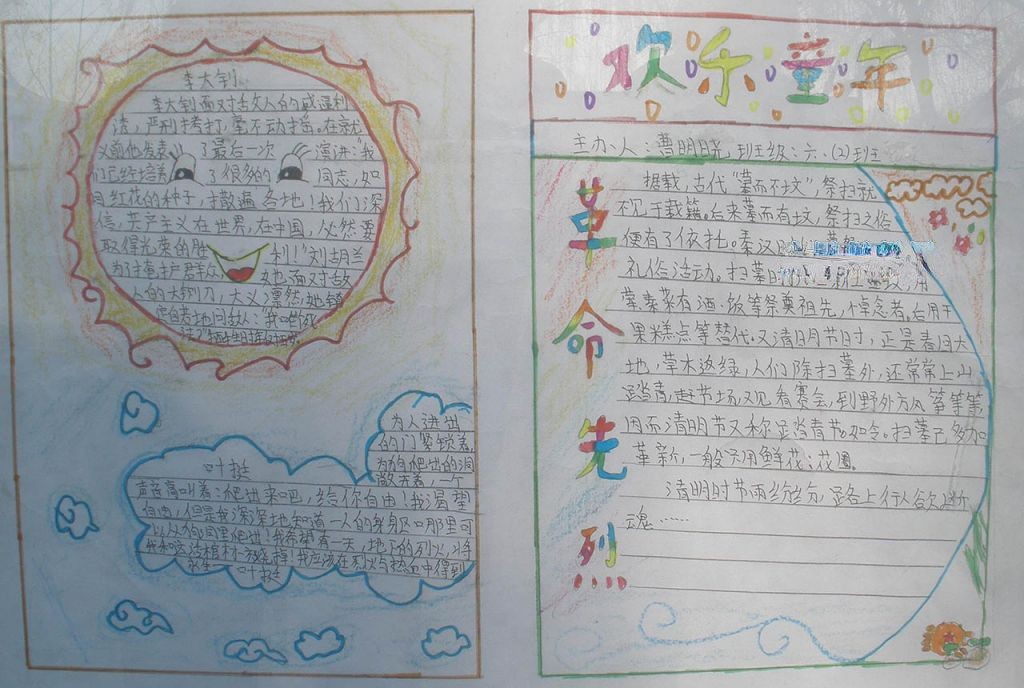 李大钊
李大钊面对敌人的威逼利
诱,严刑拷打,毫不动摇。在就
义前他发表了最后一次演讲:"我
们已经培养了很多的同志,如
同红花的种子,播遍各地!我们深
信,共产主义在世界,在中国,必然要
取得光荣的胜利!"刘胡兰
为了掩护群众,她也面对敌
人的大铡刀,大义凛然,她镇
为人进出
的门紧锁着,
为狗爬出的洞
敞开着,一个
叶挺
声音高叫着:爬出来吧,给你自由!我渴望
自由,但是我深深地知道——人的身躯哪里可
以从狗洞里爬出!我希望有一天,地下的烈火,将
我和这活棺材一齐烧掉,我应该在烈火与热血中得到
永生——叶挺
欢乐童年
主办人:曹明晓 班级:六、(2)班
革命先烈
据载,古代"墓而不坟",祭扫就
不见于载籍。后来墓而有坟,祭扫之俗
便有了依托。秦汉时
礼俗活动。扫墓时
荤素菜肴酒、饭等祭奠祖先,悼念者。后用干
果糕点等替代。又清明节时,正是春回大
地,草木返绿,人们除扫墓外,还常常上山
踏青,赶节场,观看赛会,到野外放风筝等等,
因而清明节又称踏青节。如今。扫墓已多加
革新,一般采用鲜花、花圈。
清明时节雨纷纷,路上行人欲断
魂……